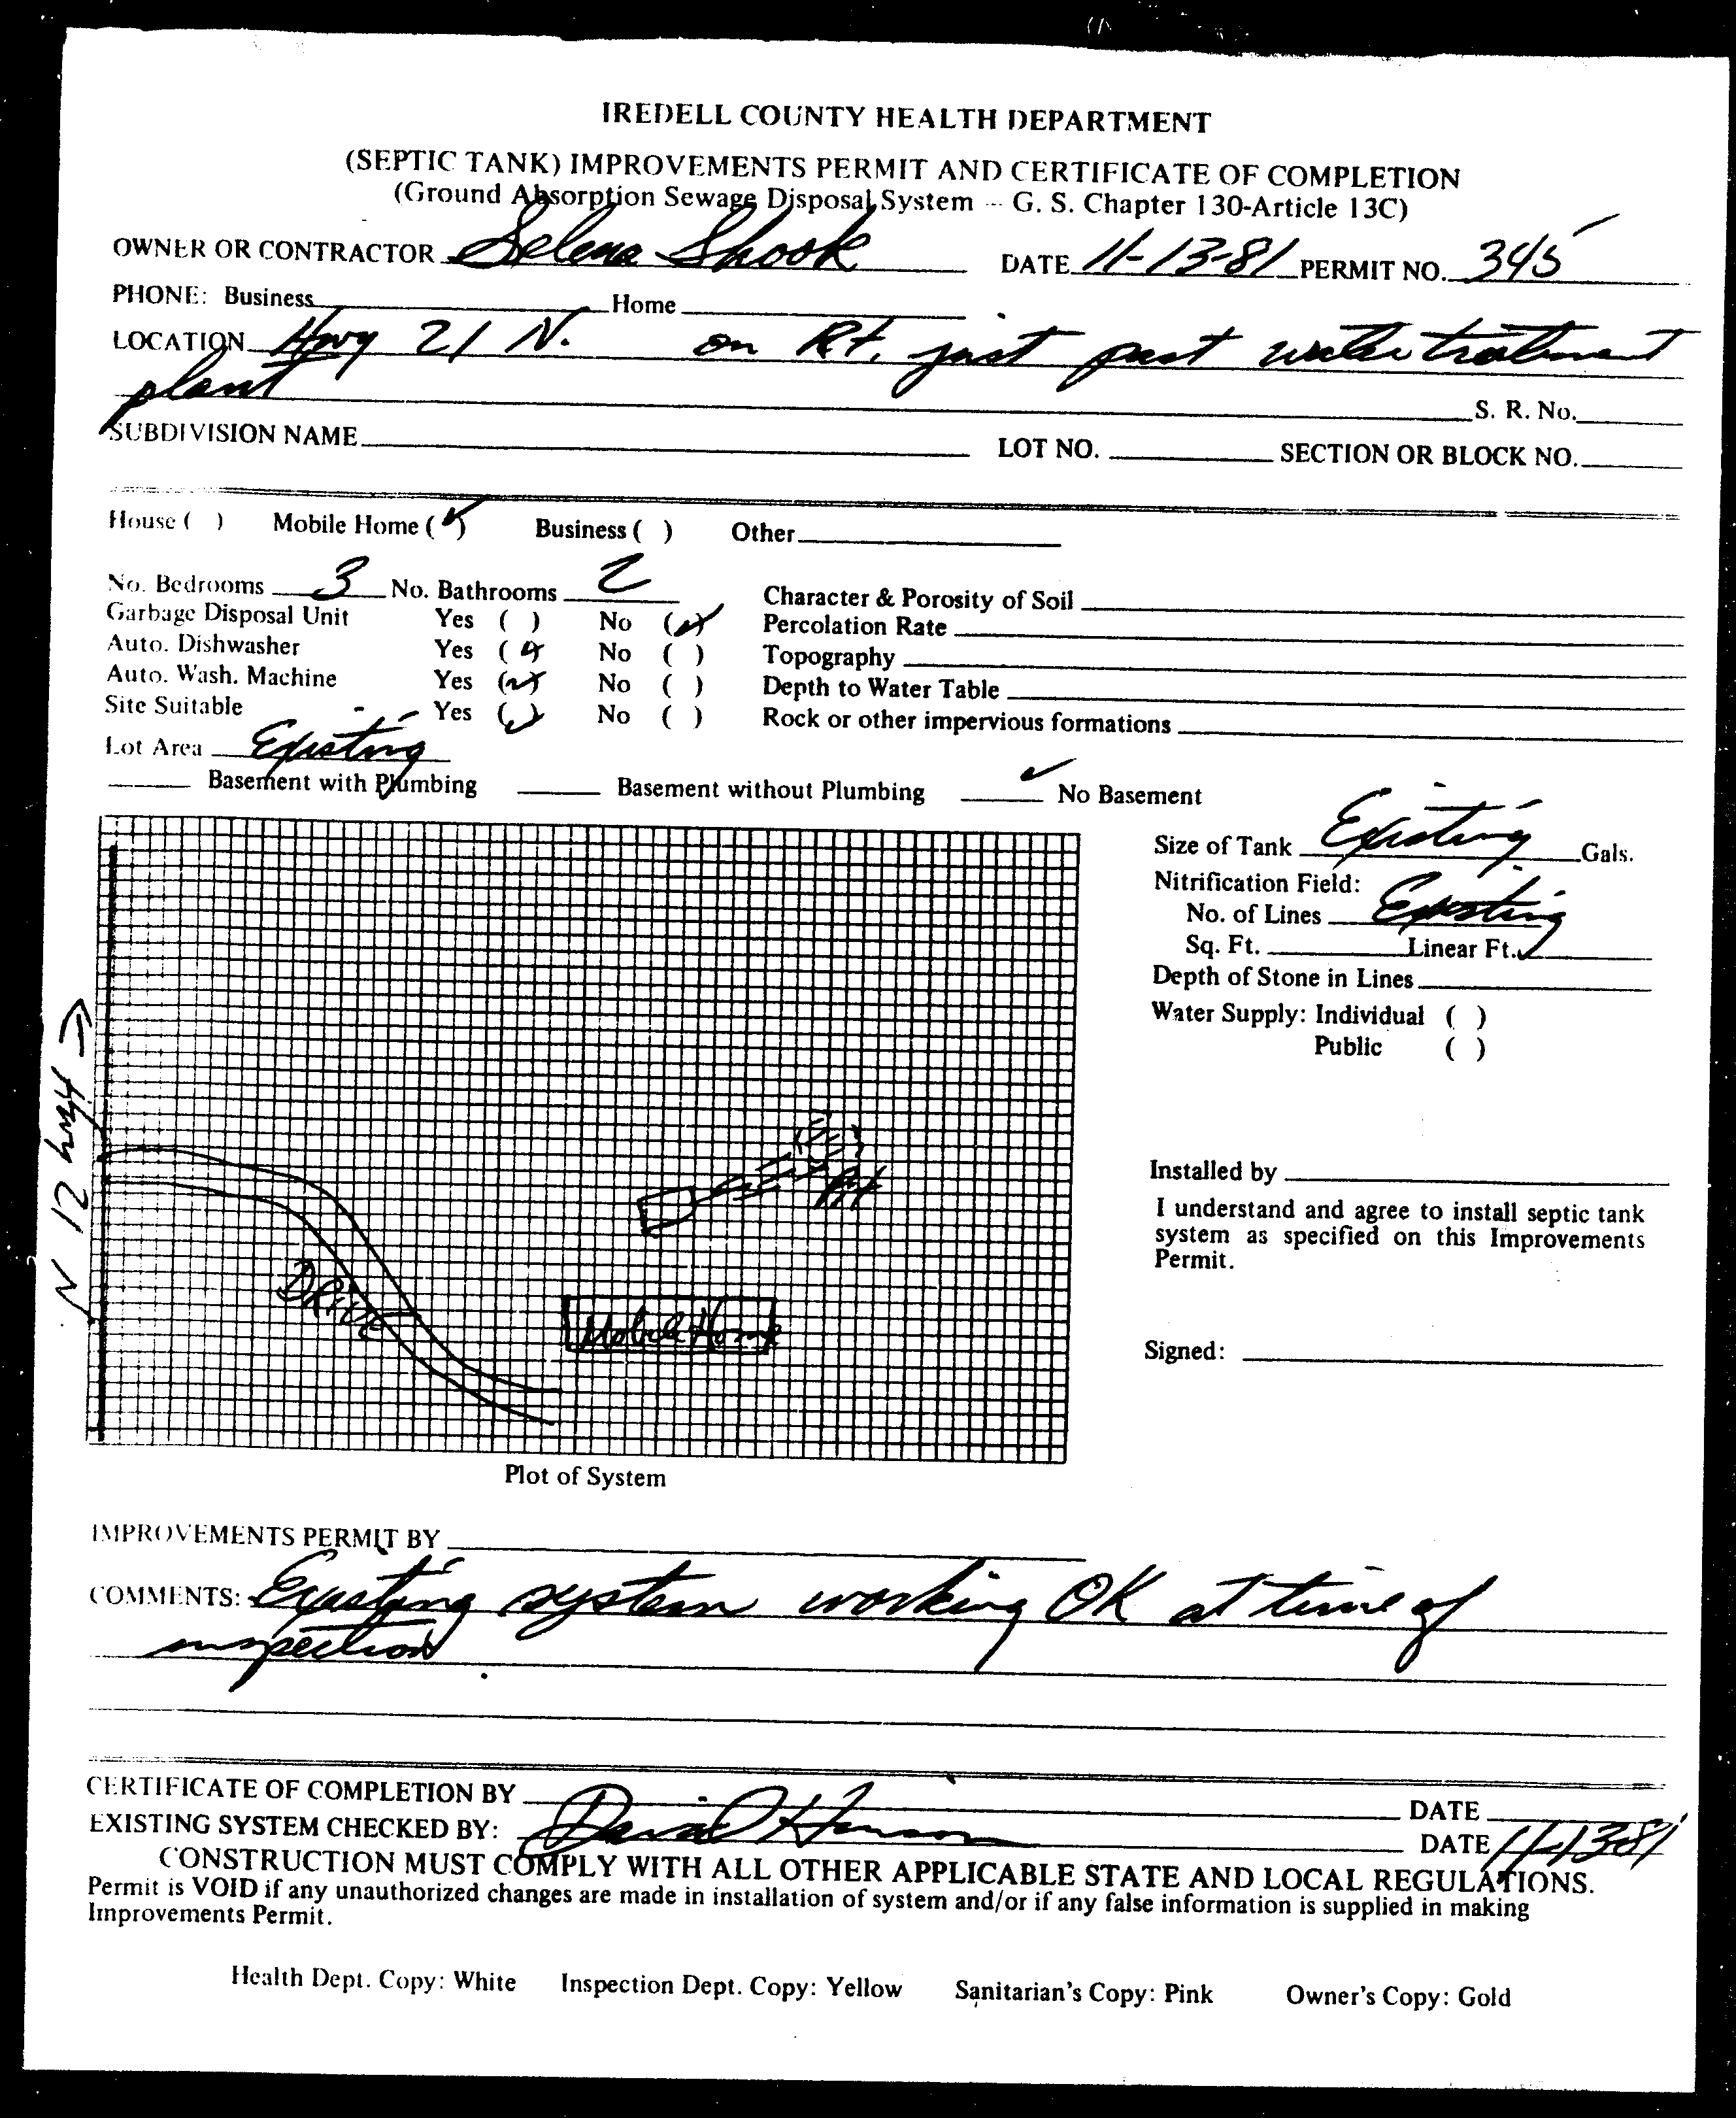 IREDELL COUNTY HEALTH DEPARTMENT
(SEPTIC TANK) IMPROVEMENTS PERMIT AND CERTIFICATE OF COMPLETION
(Ground Absorption Sewage Disposal System -- G. S. Chapter 130-Article 13C)
OWNER OR CONTRACTOR Selena Shook DATE 11-13-81 PERMIT NO. 345
PHONE: Business Home
LOCATION Hwy 21 N. on Rt. just past water treatment
plant
S. R. No.
SUBDIVISION NAME LOT NO. SECTION OR BLOCK NO.
House ( ) Mobile Home (✓) Business ( ) Other
No. Bedrooms 3 No. Bathrooms 2 Character & Porosity of Soil
Garbage Disposal Unit Yes ( ) No (✓) Percolation Rate
Auto. Dishwasher Yes (✓) No ( ) Topography
Auto. Wash. Machine Yes (✓) No ( ) Depth to Water Table
Site Suitable Yes (✓) No ( ) Rock or other impervious formations
Lot Area Existing
Basement with Plumbing Basement without Plumbing ✓ No Basement
Size of Tank Existing Gals.
Nitrification Field:
No. of Lines Existing
Sq. Ft. Linear Ft.
Depth of Stone in Lines
Water Supply: Individual ( )
Public ( )
Installed by
I understand and agree to install septic tank
system as specified on this Improvements
Permit.
Signed:
N 12 hwy
Pit
DRIVE
Mobile Home
Plot of System
IMPROVEMENTS PERMIT BY
COMMENTS: Existing system working OK at time of
inspection.
CERTIFICATE OF COMPLETION BY DATE
EXISTING SYSTEM CHECKED BY: David DATE 11-13-81
CONSTRUCTION MUST COMPLY WITH ALL OTHER APPLICABLE STATE AND LOCAL REGULATIONS.
Permit is VOID if any unauthorized changes are made in installation of system and/or if any false information is supplied in making
Improvements Permit.
Health Dept. Copy: White Inspection Dept. Copy: Yellow Sanitarian's Copy: Pink Owner's Copy: Gold